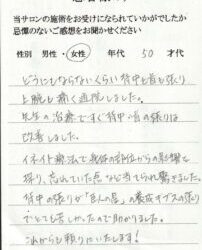 当サロンの施術をお受けになられていかがでしたか
忌憚のないご感想をお聞かせください
性別 男性・女性 年代 50 才代
どうにもならないくらい背中と首も張り
上腕も痛く通院しました。
先生の治療ですぐ背中・首の張りは
改善しました。
イネイト療法で身体の部位からの影響を
探り、忘れていた点など当てられ驚きました。
背中の張りが
でとても苦しかったので助かりました。
これからも頼りにいたします!